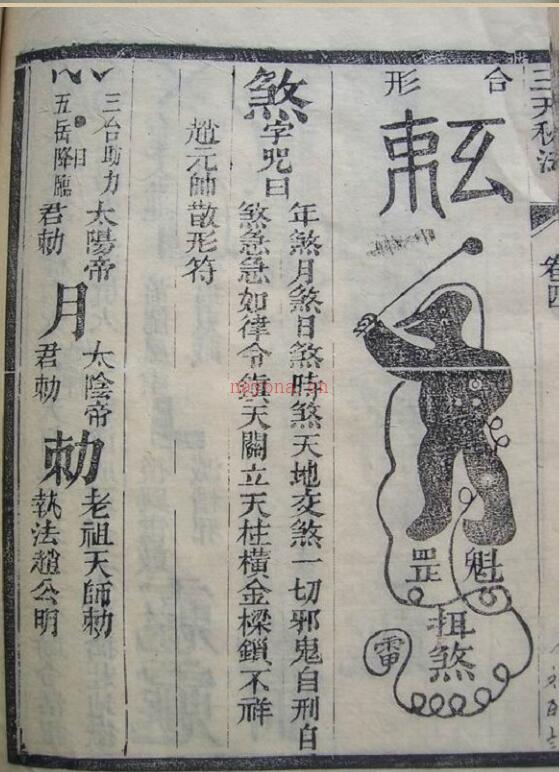 三天秘法
卷四
合形
玄
魁罡
挕煞
雷
煞字咒曰
年煞月煞日煞時煞天地交煞一切邪鬼自刑自
煞急急如律令鎮天關立天柱橫金樑鎖不祥
趙元帥散形符
三台助力
日
五岳降臨
太陽帝
君勅
月
太陰帝
君勅
勅
老祖天師勅
執法趙公明
nayona.cn